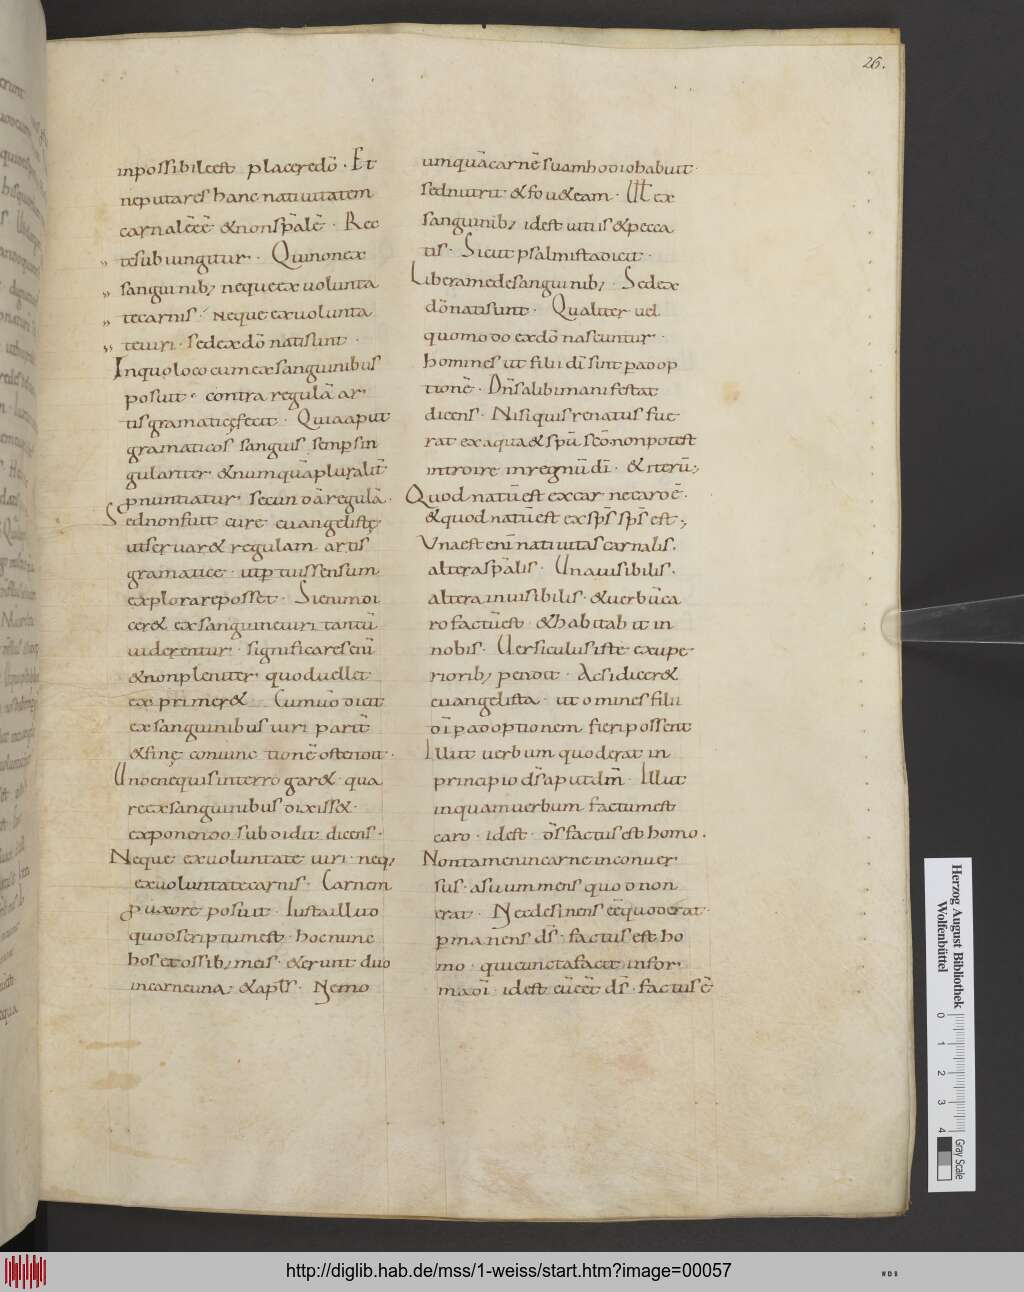 26.
inpossibileest placeredō · Et
neputares hanc natiuitatem
carnalēēē &nonspālē · Rec
tesubiungitur · Quinonex
„ sanguinib; nequeexuolunta
„ tecarnis · Neque exuolunta
„ teuiri · sedexdō natisunt ·
Inquoloco cumexsanguinibus
posuit · contra regulā ar
tisgramaticęfecit · Quiaaput
gramaticos sanguis sempsin
gulariter &numquāpluralit̄
pnuntiatur secundāregulā ·
Sednonfuit cure euangelistę
utseruar& regulam artis
gramatice · utptuissensum
explorareposset · Sienimdi
cer& exsanguineuiri tantū
uiderentur · significaresenī
&nonpleniter quoduellet
exprimer& Cumuōdicit
exsanguinibus uiri parit̄
&finę coniunctionē ostendit ·
Undenequisinterrogar& · qua
reexsanguinibus dixiss& ·
exponendo subdidit dicens ·
Neque exuoluntate uiri · neq;
exuoluntatecarnis · Carnem
puxorē posuit · Iustaillud
quodscriptumest · hocnunc
hosexossib; meis · &erunt duo
incarneuna; &apłs · Nemo
umquācarnē suamhodiohabuit ·
sednutrit &fou&eam · Ut ex
sanguinib; idest uitiis&pecca
tis · Sicut psalmistadicit ·
Liberamedesanguinib; · Sedex
dōnatisunt · Qualiter uel
quomodo exdō nascuntur ·
homines ut filii dī sint padop
tionē · Dn̄salibimanifestat
dicens · Nisiquisrenatus fue
rat exaqua&spū scōnonpotest
introire inregnū dī · &iterū;
Quod natūest excarne caroē ·
&quodnatūest exsps̄ sps̄ est;
Unaest enī natiuitas carnalis ·
alteraspālis · Unauisibilis ·
altera inuisibilis · &uerbūca
rofactūest · &habitabit in
nobis · Uersiculusiste exupe
riorib; pendit · Acsidicer&
euangelista · ut omines filii
dī padoptionem fieripossent
Illut uerbum quoderat in
principio ds̄aput dm̄ · Illut
inquamuerbum factumest
caro · idest · ds̄factusesthomo ·
Nontamenincarneinconuer
sus · asuummens quodnon
erat · Nexdesinens eēquoderat ·
pmanens ds̄ · factusestho
mo · quicunctafacit infor
madī · idest cūeēt ds̄ · factusē
Herzog August Bibliothek
Wolfenbüttel
0 1 2 3 4
Gray Scale
http://diglib.hab.de/mss/1-weiss/start.htm?image=00057